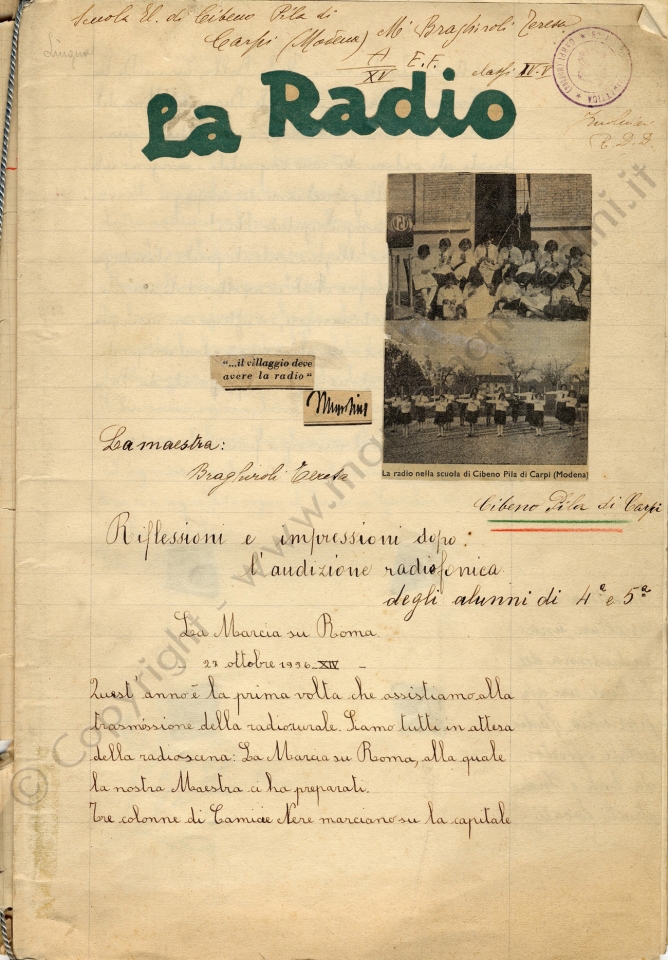 Scuola El. di Cibeno Pila di
Carpi (Modena) Mª Braghiroli Teresa
A
XV E.F. classi IV-V
Lingua
La Radio
"...il villaggio deve
avere la radio"
La maestra:
Braghiroli Teresa
La radio nella scuola di Cibeno Pila di Carpi (Modena)
Cibeno Pila di Carpi
Riflessioni e impressioni dopo
l'audizione radiofonica
degli alunni di 4ª e 5ª
La Marcia su Roma
- 28 ottobre 1936-XIV -
Quest'anno è la prima volta che assistiamo alla
trasmissione della radiorurale. Siamo tutte in attesa
della radioscena: La Marcia su Roma, alla quale
la nostra Maestra ci ha preparati.
Tre colonne di Camicie Nere marciano su la capitale
© Copyright - www.